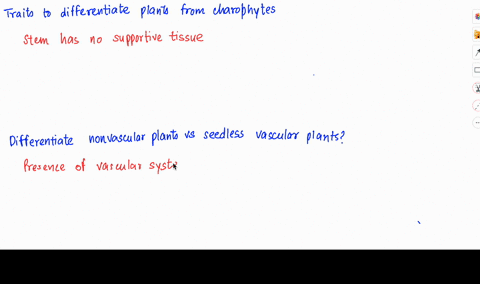 Traits to differentiate plants from charophytes
Stem has no supportive tissue
Differentiate nonvascular plants vs seedless vascular plants?
Presence of vascular syst